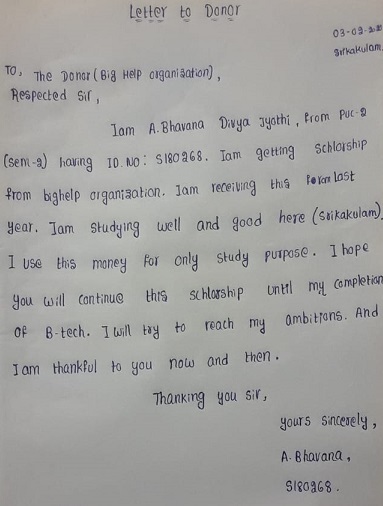 Letter to Donor
03-02-2
Srikakulam.
To, The Donor (Big Help organization),
Respected Sir,
Iam A. Bhavana Divya Jyothi, from PUC-2
(sem-2) having ID. NO: S180268. Iam getting Schlorship
from bighelp organization. Iam receiving this from last
year. Iam studying well and good here (Srikakulam).
I use this money for only study purpose. I hope
you will continue this schlorship until my completion
of B-tech. I will try to reach my ambitions. And
I am thankful to you now and then.
Thanking you sir,
yours sincerely,
A. Bhavana,
S180268.